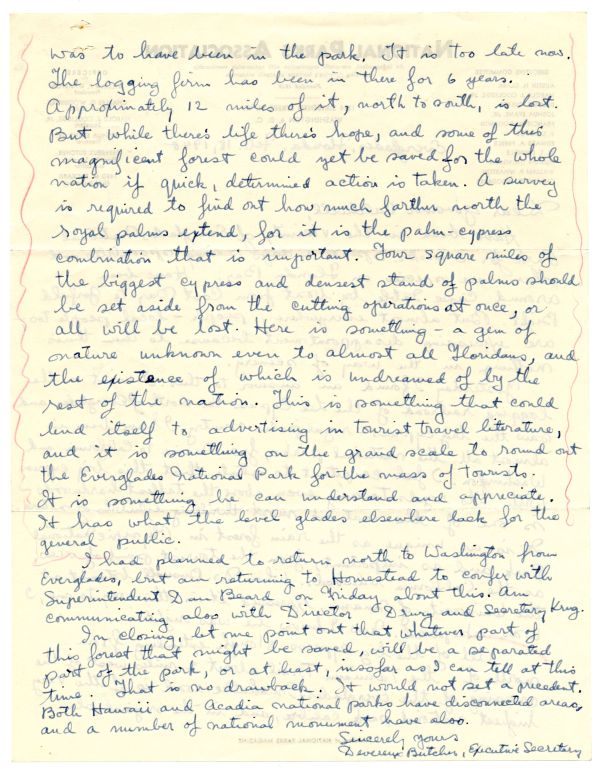 was to have been in the park. It is too late now.
The logging firm has been in there for 6 years.
Approximately 12 miles of it, north to south, is lost.
But while there's life there's hope, and some of this
magnificent forest could yet be saved for the whole
nation if quick, determined action is taken. A survey
is required to find out how much farther north the
royal palms extend, for it is the palm-cypress
combination that is important. Four square miles of
the biggest cypress and densest stand of palms should
be set aside from the cutting operations at once, or
all will be lost. Here is something - a gem of
nature unknown even to almost all Floridans, and
the existence of which is undreamed of by the
rest of the nation. This is something that could
lend itself to advertising in tourist travel literature,
and it is something on the grand scale to round out
the Everglades National Park for the mass of tourists.
It is something he can understand and appreciate.
It has what the level glades elsewhere lack for the
general public.
I had planned to return north to Washington from
Everglades, but am returning to Homestead to confer with
Superintendent Dan Beard on Friday about this. Am
communicating also with Director Drury and Secretary Krug.
In closing, let me point out that whatever part of
this forest that might be saved, will be a separated
part of the park, or at least, insofar as I can tell at this
time. That is no drawback. It would not set a precedent.
Both Hawaii and Acadia national parks have disconnected areas,
and a number of national monument have also.
Sincerely yours
Devereux Butcher, Executive Secretary
NATIONAL PARKS ASSOCIATION